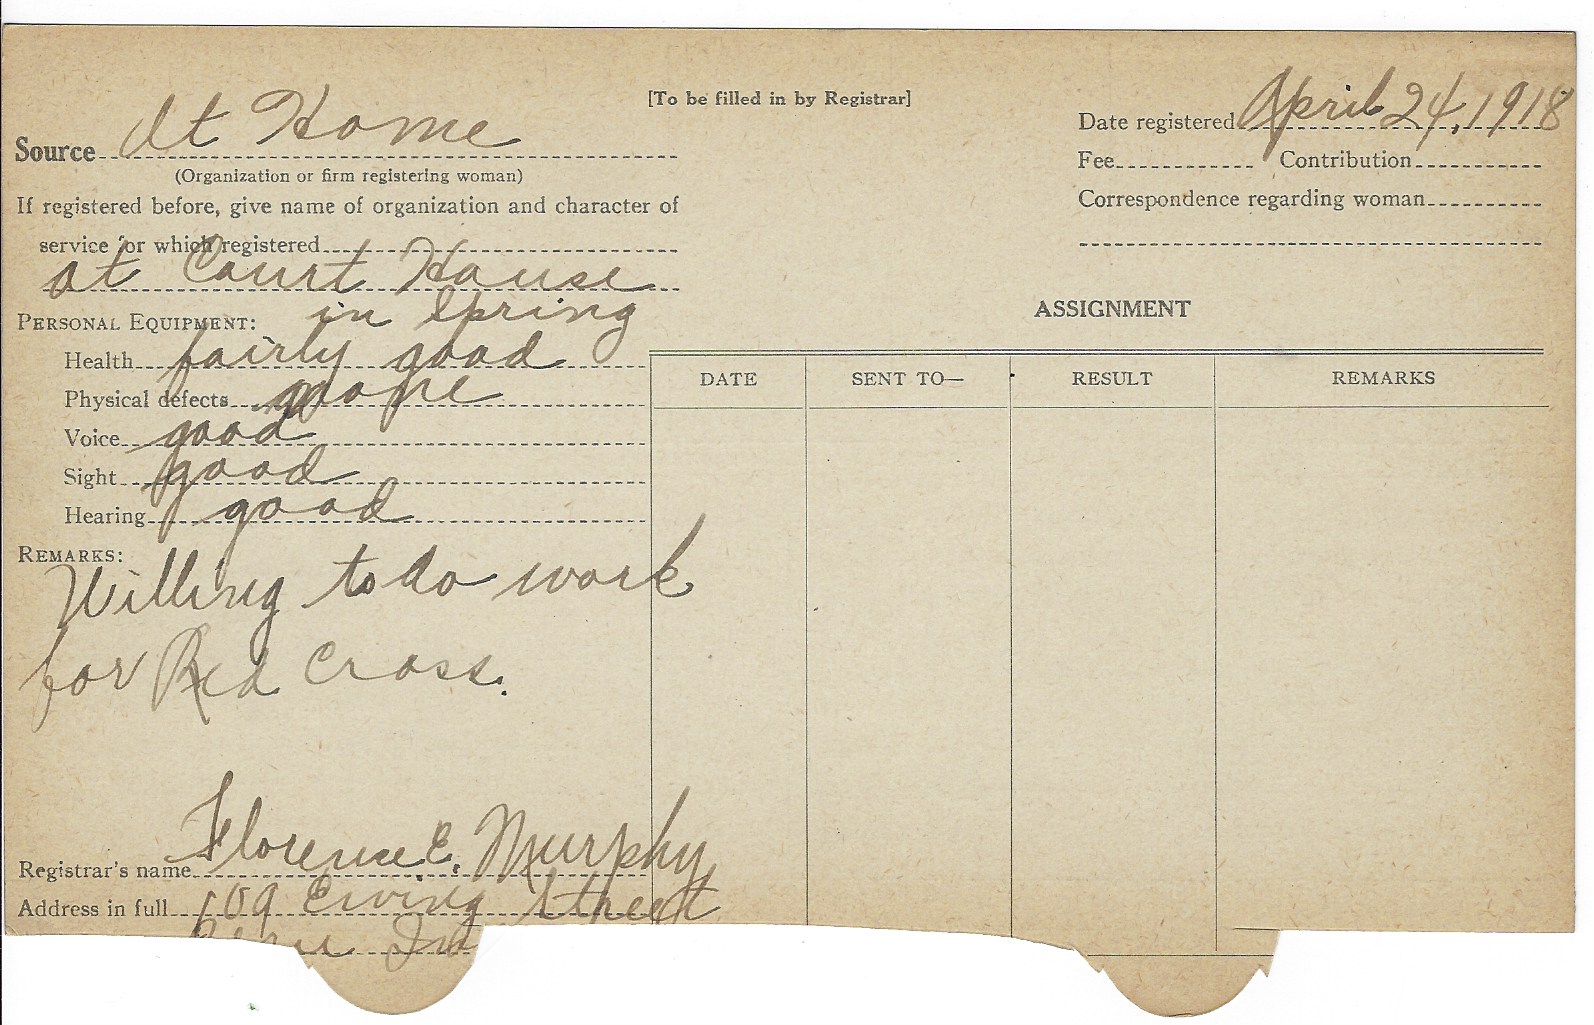 [To be filled in by Registrar]
Source At Home
(Organization or firm registering woman)
If registered before, give name of organization and character of
service for which registered
at Court House
in Spring
Date registered April 24, 1918
Fee Contribution
Correspondence regarding woman
PERSONAL EQUIPMENT:
Health fairly good
Physical defects none
Voice good
Sight good
Hearing good
REMARKS:
Willing to do work
for Red Cross.
Registrar's name Florence E. Murphy
Address in full 109 Ewing Street
Peru In
ASSIGNMENT
DATE SENT TO— RESULT REMARKS